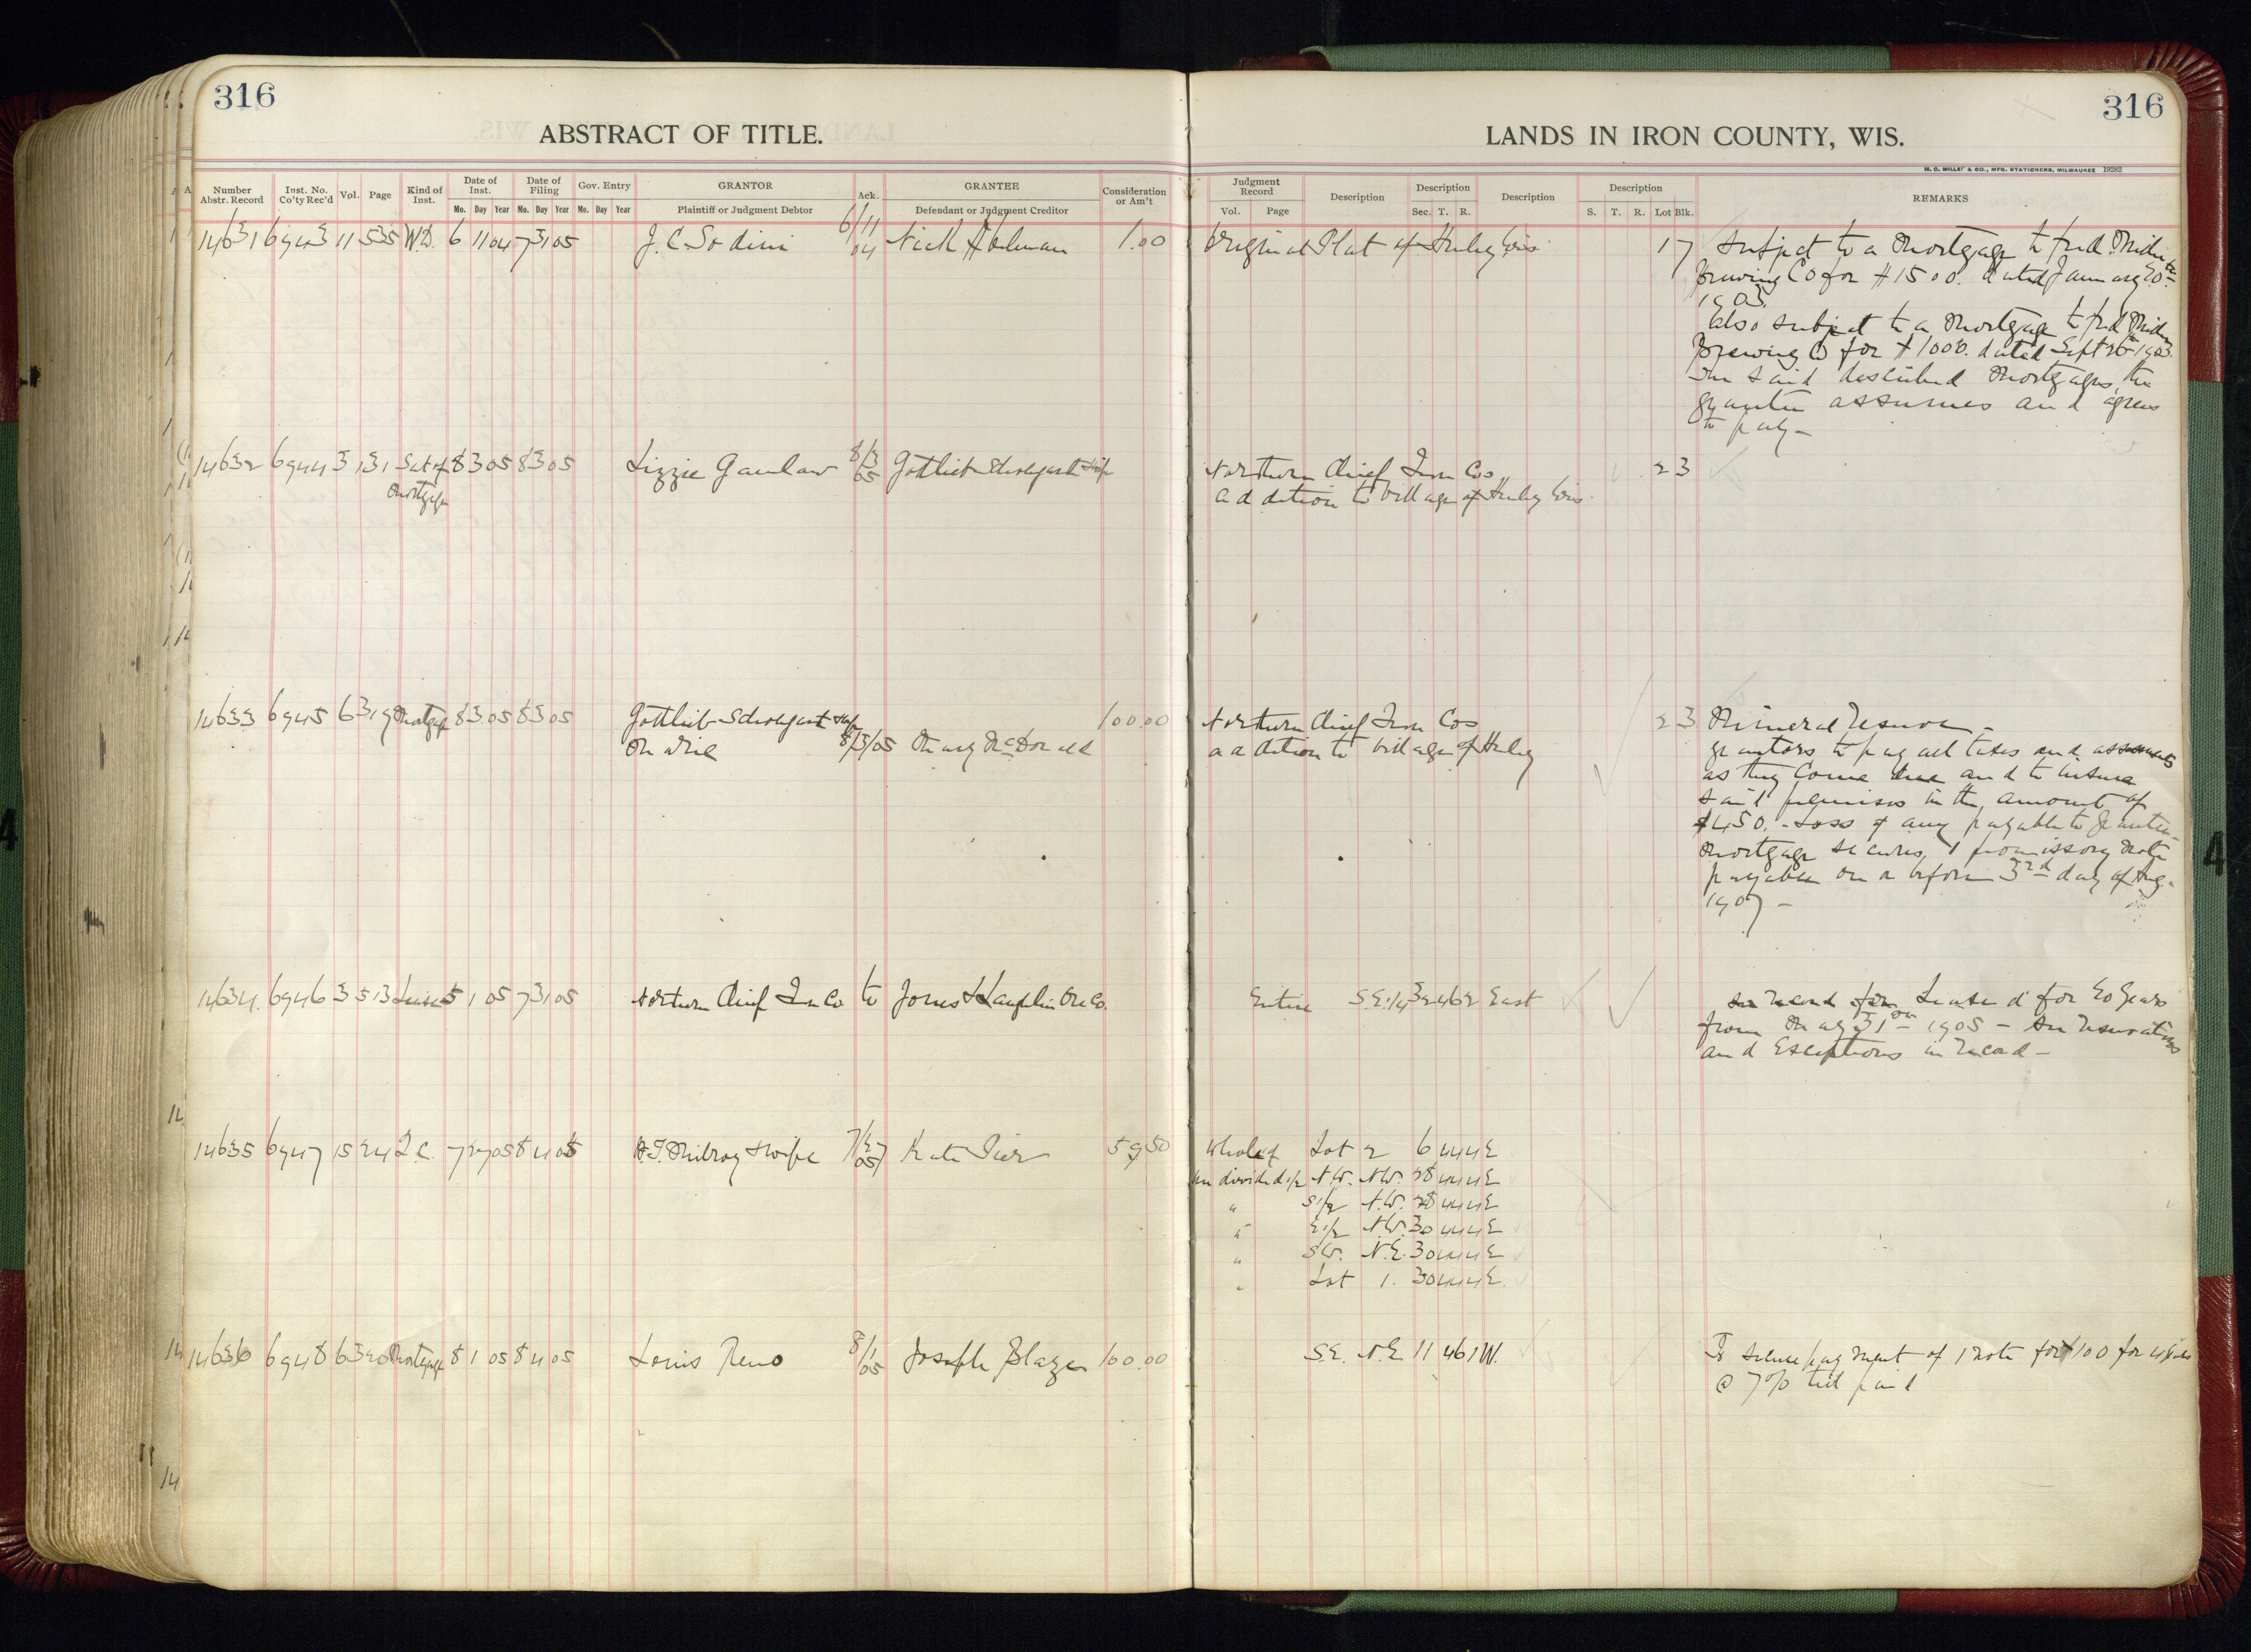 316
316
ABSTRACT OF TITLE.
LANDS IN IRON COUNTY, WIS.
H. C. MILLER & CO., MFG. STATIONERS, MILWAUKEE 19282
Number Abstr. Record Inst. No. Co'ty Rec'd Vol. Page Kind of Inst. Date of Inst. Mo. Day Year Date of Filing Mo. Day Year Gov. Entry Mo. Day Year GRANTOR Plaintiff or Judgment Debtor Ack. GRANTEE Defendant or Judgment Creditor Consideration or Am't
Judgment Record Vol. Page Description Description Sec. T. R. Description Description S. T. R. Lot Blk. REMARKS
14631 6943 11 535 W.D. 6 11 04 7 31 05 J. C. Sodini 6/11 04 Nick 1.00 Original Plat of Hurley Wis. 1 7 Subject to a Mortgage to Fred
Brewing Co for $1500. dated January 20th
1903.
Also subject to a Mortgage to Fred
Brewing Co for $1000. dated Sept 26th 1903.
said described Mortgages, the
grantee assumes and agrees
to pay –
14632 6944 3 131 Sat of 8 3 05 8 3 05 Lizzie 8/3 05 Gottlieb Northern Chief Iron Cos 2 3
Mortgage addition to Village of Hurley Wis.
14633 6945 6 319 Mortgage 8 3 05 8 3 05 Gottlieb 100.00 Northern Chief Iron Cos 2 3 Mineral Reserve –
8/3/05 Mary McDonald addition to Village of Hurley grantors to pay all taxes and
as they come due and to insure
said premises in the amount of
$450. – Loss if any payable to grantee –
Mortgage secures 1 promissory note
payable on or before 3rd day of Aug.
1907 –
14634 6946 3 513 Lease 5 1 05 7 31 05 Northern Chief Ir Co to Jones & Laughlin Ore Co. Entire S.E. 1/4 32 46 2 East Leased for 20 years
from May 1905 – See Reservations
and Exceptions in Record –
14635 6947 15 24 Q.C. 7 27 05 8 4 05 & wife 7/27 05 Kate Pier 59 50 Whole of Lot 2 6 44 4 E
undivided 1/2 N.W. N.W. 28 44 4 E
" S 1/2 N.W. 28 44 4 E
" E 1/2 N.W. 30 44 4 E
" S.W. N.E. 30 44 4 E
" Lot 1. 30 44 4 E.
14636 6948 6 320 Mortgage 8 1 05 8 4 05 Louis Reno 8/1 05 Joseph Blazer 100.00 S.E. N.E 11 46 1 W. To secure payment of 1 note for $100 for
@ 7% till paid